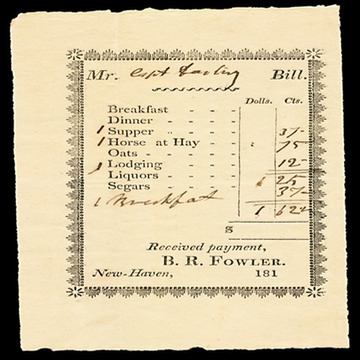 Mr. Capt Bill.
Dolls. Cts.
Breakfast
Dinner
1 Supper 37
1 Horse at Hay 75
Oats
1 Lodging 12
Liquors 1 25
Segars 37
1 Breakfast
1 62
$
Received payment,
B. R. FOWLER.
New-Haven, 181